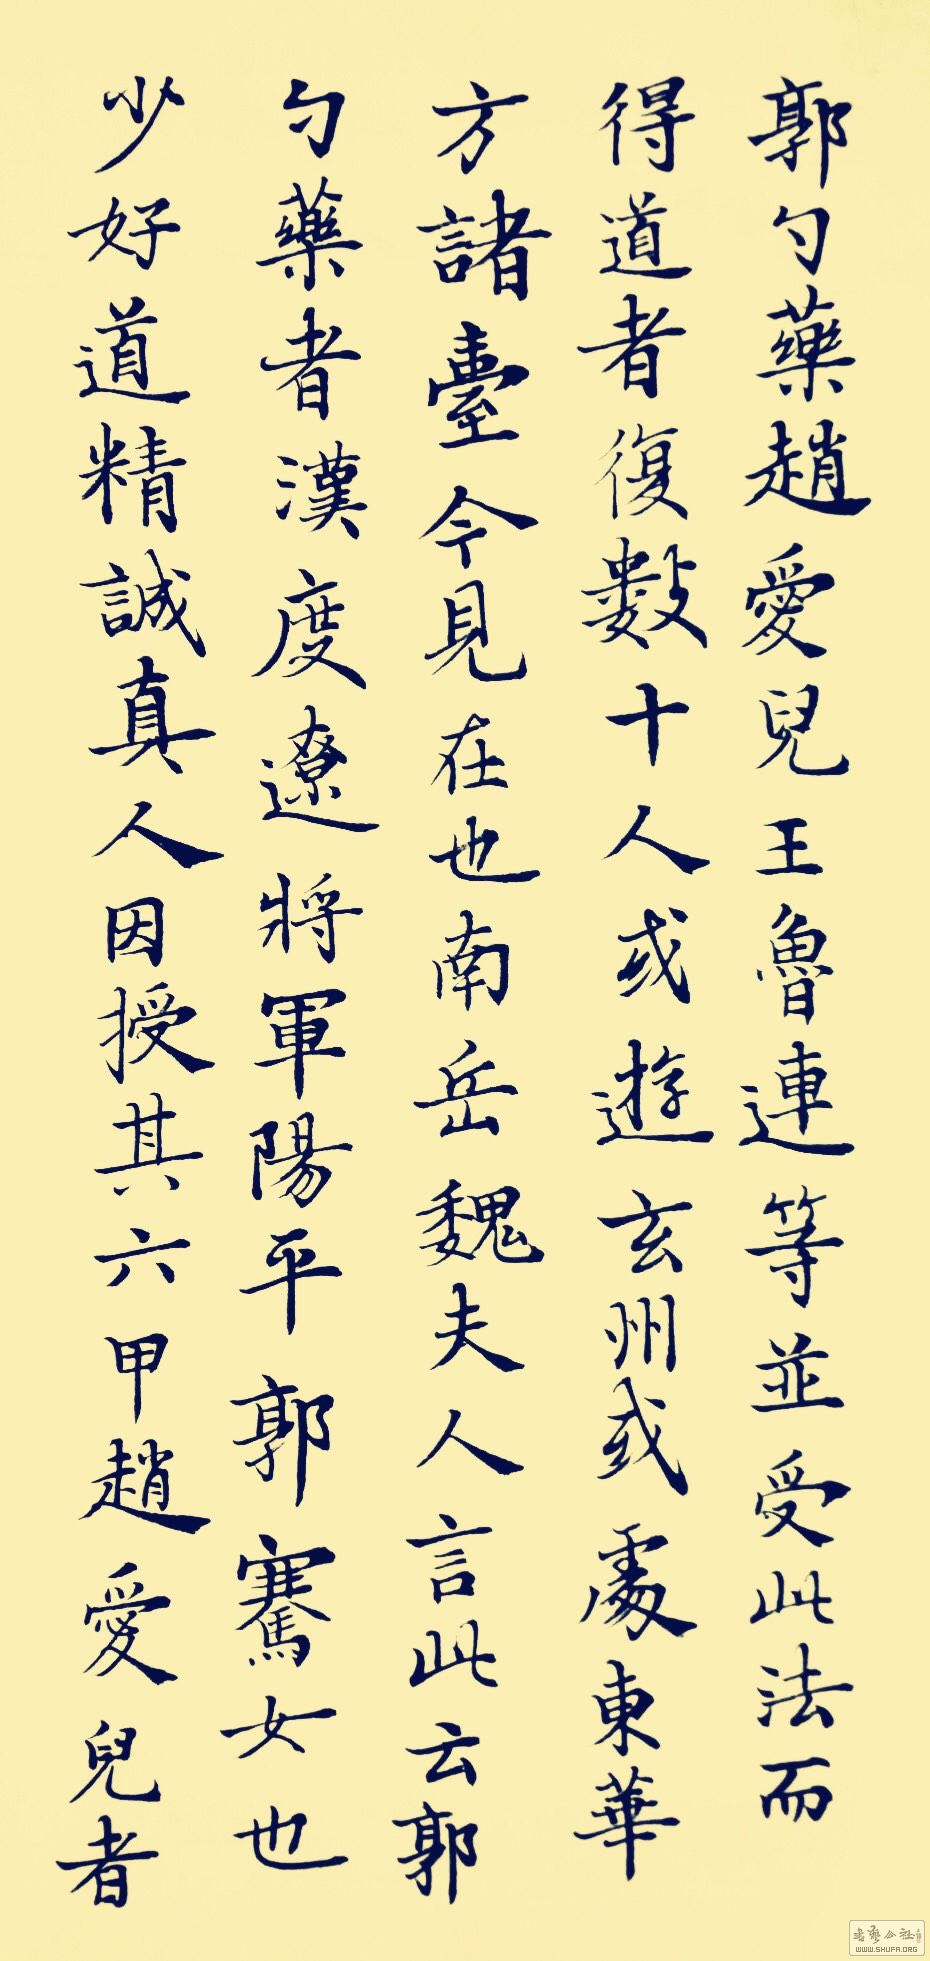 郭勺藥趙愛兒王魯連等並受此法而
得道者復數十人或遊玄州或處東華
方諸臺今見在也南岳魏夫人言此云郭
勺藥者漢度遼將軍陽平郭騫女也
少好道精誠真人因授其六甲趙愛兒者
WWW.SHUFA.ORG